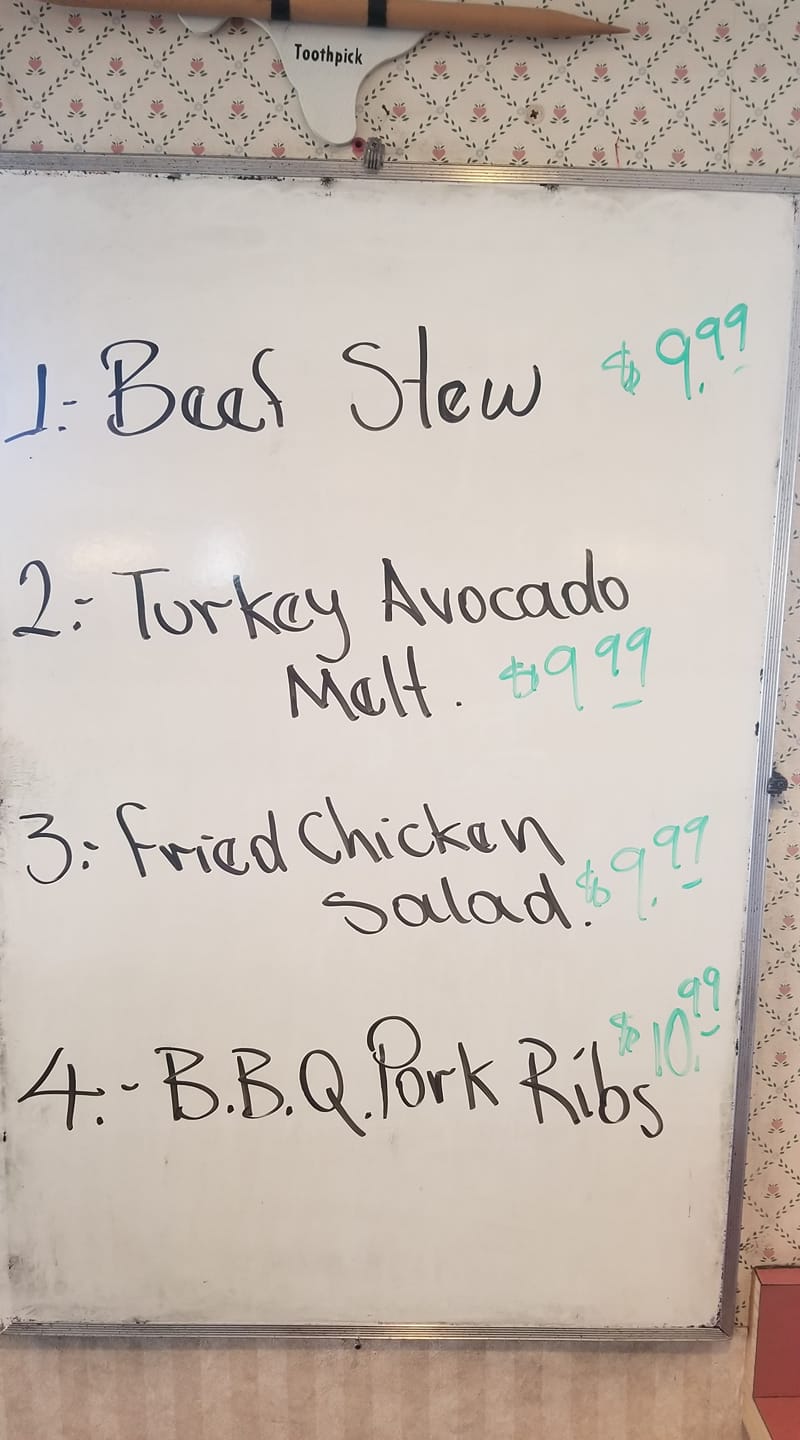 Toothpick
1.- Beef Stew $9.99
2.- Turkey Avocado
Melt. $9.99
3.- Fried Chicken
Salad. $9.99
4.- B.B.Q. Pork Ribs $10.99